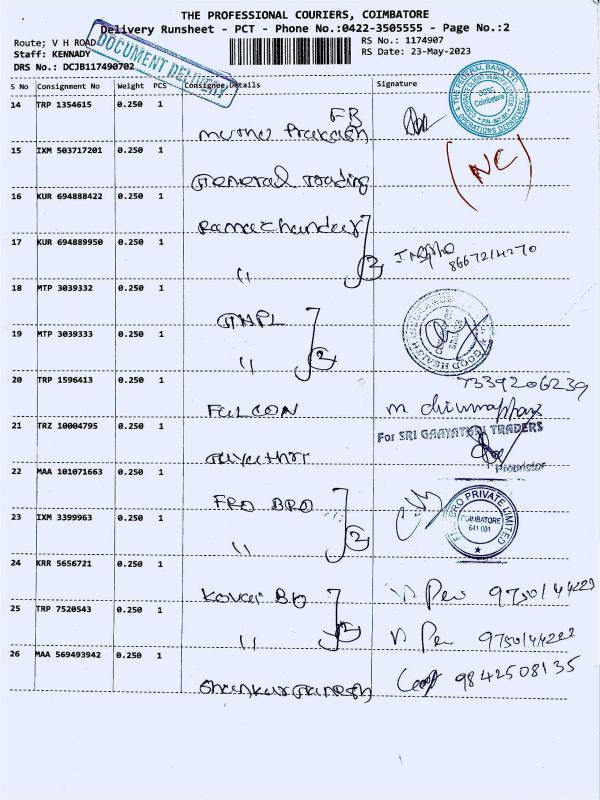 THE PROFESSIONAL COURIERS, COIMBATORE
Delivery Runsheet - PCT - Phone No.:0422-3505555 - Page No.:2
Route; V H ROAD
RS No.: 1174907
Staff: KENNADY
RS Date: 23-May-2023
DRS No.: DCJB117490702
DOCUMENT DELIVERY
S No Consignment No Weight PCS Consignee Details Signature
14 TRP 1354615 0.250 1
FB
Muthu Prakash
THE FEDERAL BANK
Coimbatore
OPERATIONS DEPARTMENT
15 IXM 503717201 0.250 1
General Trading
(NC)
16 KUR 694888422 0.250 1
Ramachandar
17 KUR 694889950 0.250 1
" 2
8667214270
18 MTP 3039332 0.250 1
GHPL
19 MTP 3039333 0.250 1
" 2
GOOD HEALTH
20 TRP 1596413 0.250 1
FALCON
7339206239
M
21 TRZ 10004795 0.250 1
Gayathri
For SRI GAAYATHRI TRADERS
Proprietor
22 MAA 101071663 0.250 1
FRO BRO
23 IXM 3399963 0.250 1
" 2
BRO PRIVATE LIMITED
COIMBATORE
641 001
24 KRR 5656721 0.250 1
Kovai Bio
25 TRP 7520543 0.250 1
" 2
26 MAA 569493942 0.250 1
Shankar Ganesh
9842508135